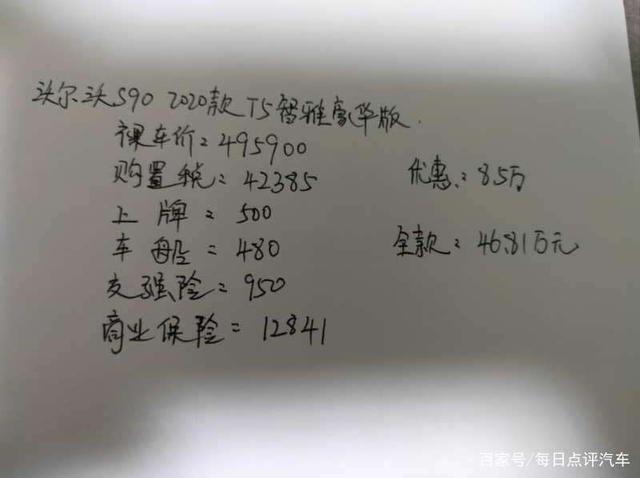 沃尔沃S90 2020款T5智雅豪华版.
裸车价：495900
购置税：42385
优惠：8.5万
上牌：500
车船：480
全款：46.81万元
交强险：950
商业保险：12841
百家号/每日点评汽车